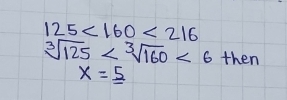 125 < 160 < 216
∛125 < ∛160 < 6 then
x = 5